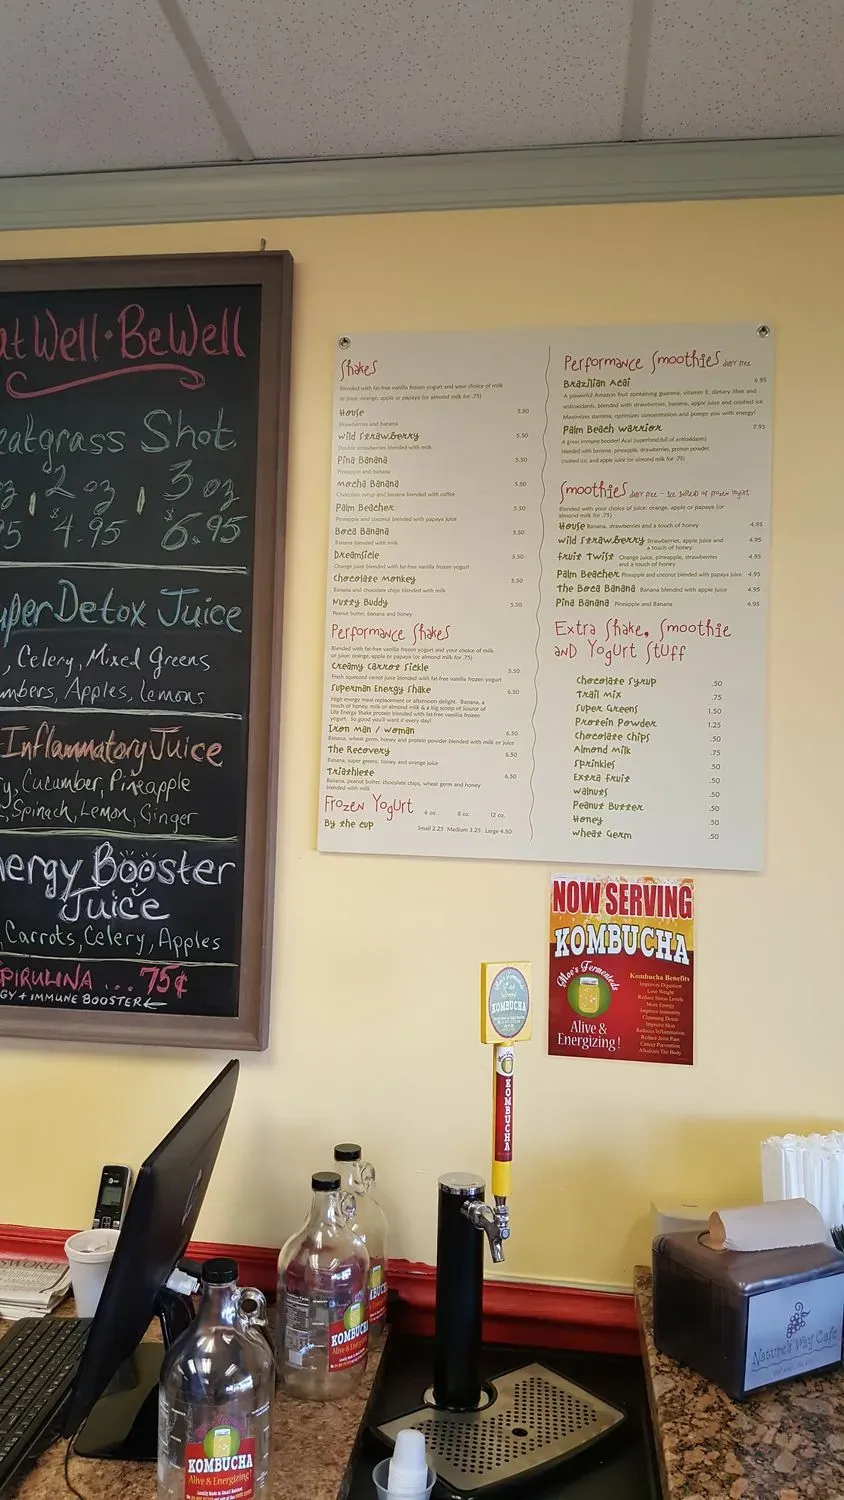 at Well · Be Well
eatgrass Shot
oz 2 oz 3 oz
95 $4.95 $6.95
per Detox Juice
, Celery, Mixed Greens
mbers, Apples, Lemons
Inflammatory Juice
y, Cucumber, Pineapple
, Spinach, Lemon, Ginger
nergy Booster
Juice
, Carrots, Celery, Apples
PIRULINA ... 75¢
GY + IMMUNE BOOSTER
Shakes
Blended with fat-free vanilla frozen yogurt and your choice of milk
or juice: orange, apple or papaya (or almond milk for .75)
House 5.50
Strawberries and banana
Wild Strawberry 5.50
Double strawberries blended with milk
Pina Banana 5.50
Pineapple and banana
Mocha Banana 5.50
Chocolate syrup and banana blended with coffee
Palm Beacher 5.50
Pineapple and coconut blended with papaya juice
Boca Banana 5.50
Banana blended with milk
Dreamsicle 5.50
Orange juice blended with fat-free vanilla frozen yogurt
Chocolate Monkey 5.50
Banana and chocolate chips blended with milk
Nutty Buddy 5.50
Peanut butter, banana and honey
Performance Shakes
Blended with fat-free vanilla frozen yogurt and your choice of milk
or juice: orange, apple or papaya (or almond milk for .75)
Creamy Carrot Sickle 5.50
Fresh squeezed carrot juice blended with fat-free vanilla frozen yogurt
Superman Energy Shake 6.50
High energy meal replacement or afternoon delight. Banana, a
touch of honey, milk or almond milk & a big scoop of Source of
Life Energy Shake protein blended with fat-free vanilla frozen
yogurt. So good you'll want it every day!
Iron Man / Woman 6.50
Banana, wheat germ, honey and protein powder blended with milk or juice
The Recovery 6.50
Banana, super greens, honey and orange juice
Triathlete 6.50
Banana, peanut butter, chocolate chips, wheat germ and honey
blended with milk
Frozen Yogurt 6 oz. 8 oz. 12 oz.
By the cup Small 2.25 Medium 3.25 Large 4.50
Performance Smoothies dairy free
Brazilian Acai 6.95
A powerful Amazon fruit containing guarana, vitamin E, dietary fiber and
antioxidants, blended with strawberries, banana, apple juice and crushed ice.
Maximizes stamina, optimizes concentration and pumps you with energy!
Palm Beach Warrior 7.95
A great immune booster! Acai (superfood full of antioxidants)
blended with banana, pineapple, strawberries, protein powder,
crushed ice, and apple juice (or almond milk for .75)
Smoothies dairy free - ice instead of frozen yogurt
Blended with your choice of juice: orange, apple or papaya (or
almond milk for .75)
House Banana, strawberries and a touch of honey 4.95
Wild Strawberry Strawberries, apple juice and 4.95
a touch of honey
Fruit Twist Orange juice, pineapple, strawberries 4.95
and a touch of honey
Palm Beacher Pineapple and coconut blended with papaya juice 4.95
The Boca Banana Banana blended with apple juice 4.95
Pina Banana Pineapple and Banana 4.95
Extra Shake, Smoothie
and Yogurt Stuff
Chocolate Syrup .50
Trail Mix .75
Super Greens 1.50
Protein Powder 1.25
Chocolate Chips .50
Almond Milk .75
Sprinkles .50
Extra Fruit .50
Walnuts .50
Peanut Butter .50
Honey .50
Wheat Germ .50
NOW SERVING
KOMBUCHA
Moe's Fermented
Alive &
Energizing!
Kombucha Benefits
Improves Digestion
Lose Weight
Reduce Stress Levels
More Energy
Improve Immunity
Cleansing Detox
Improve Skin
Reduces Inflammation
Reduce Joint Pain
Cancer Prevention
Alkalizes The Body
KOMBUCHA
KOMBUCHA
at&t
SWORD
KOMBUCHA
Alive & Energizing!
KOMBUCHA
Alive & Energizing!
Locally Made in Small Batches
Nature's Way Cafe